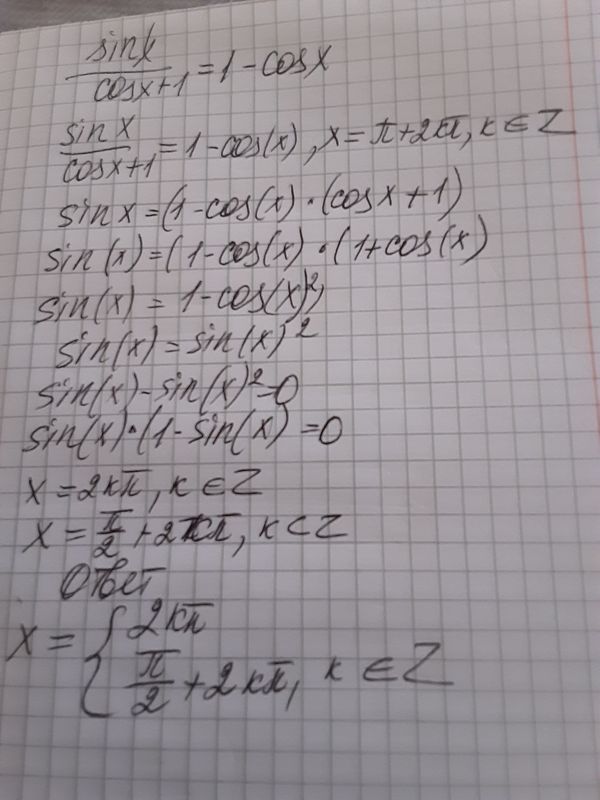 sinx/cosx+1 = 1-cosx
sinx/cosx+1 = 1-cos(x), x=π+2kπ, k∈Z
sinx=(1-cos(x)·(cosx+1)
sin(x)=(1-cos(x)·(1+cos(x)
sin(x)=1-cos(x)²
sin(x)=sin(x)²
sin(x)-sin(x)²=0
sin(x)·(1-sin(x)=0
x=2kπ, k∈Z
x=π/2+2kπ, k⊂Z
Ответ
x={2kπ
π/2+2kπ, k∈Z